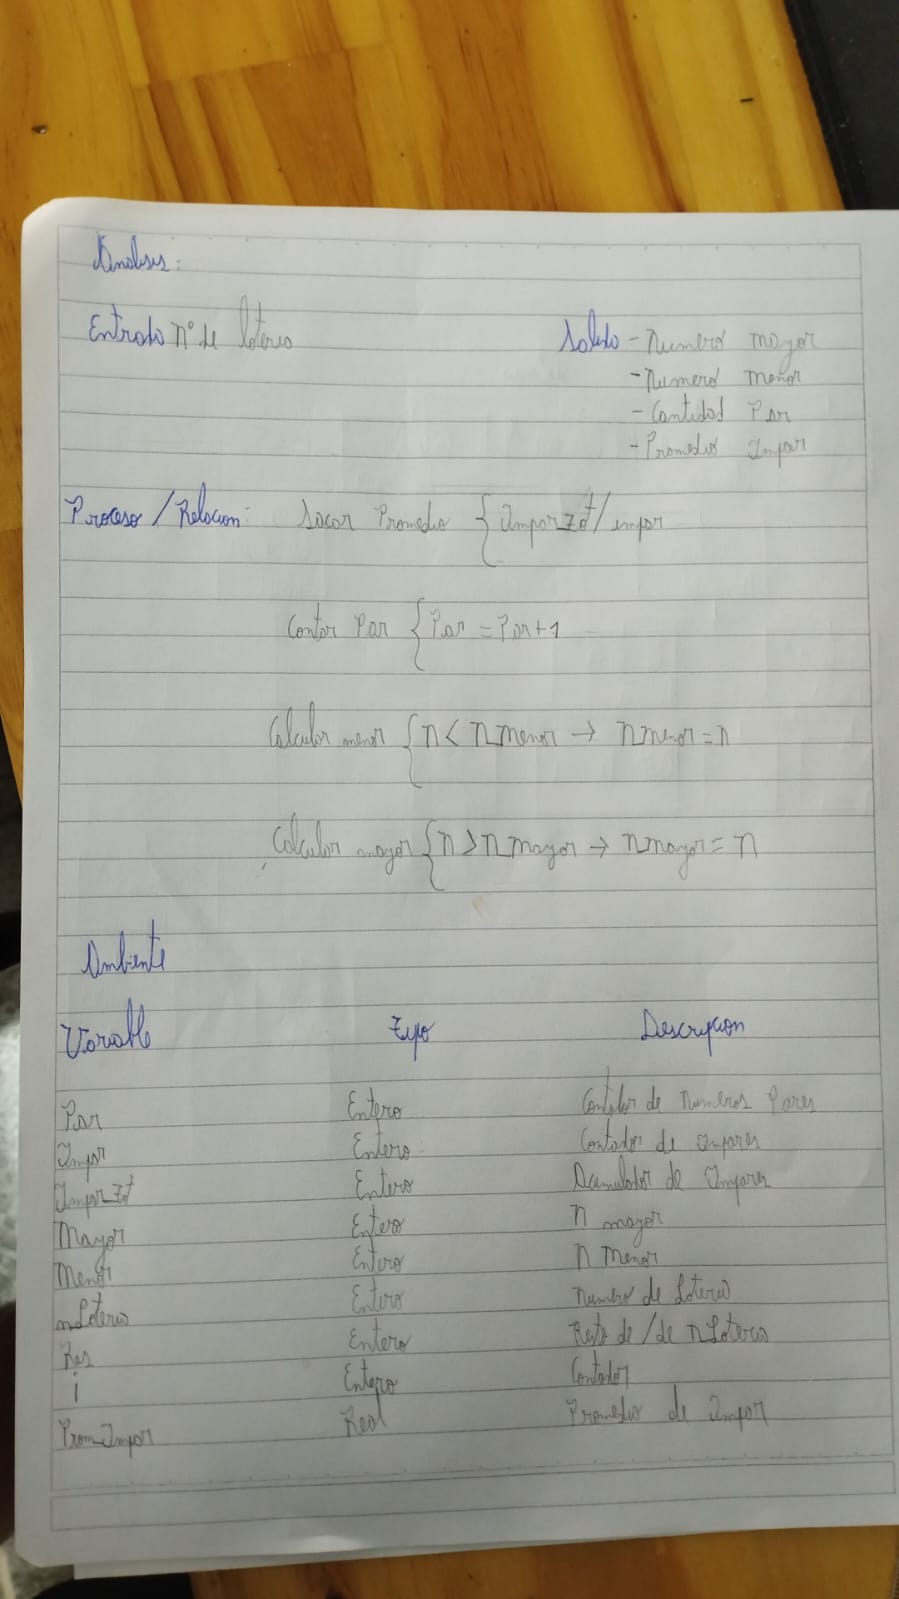 Analisis:
Entrada n° de loteria
Salida - Numero mayor
- Numero menor
- Cantidad Par
- Promedio Impar
Proceso / Relacion: Sacar Promedio { ImparTot / impar
Contar Par { Par = Par + 1
Calcular menor { n < n menor → n menor = n
Calcular mayor { n > n mayor → n mayor = n
Ambiente
Variable Tipo Descripcion
Par Entero Contador de Numeros Pares
Impar Entero Contador de Impares
ImparTot Entero Acumulador de Impares
Mayor Entero n mayor
Menor Entero n Menor
nLoteria Entero Numero de Loteria
Res Entero Resto de / de nLoteria
i Entero Contador
PromImpar Real Promedio de Impar